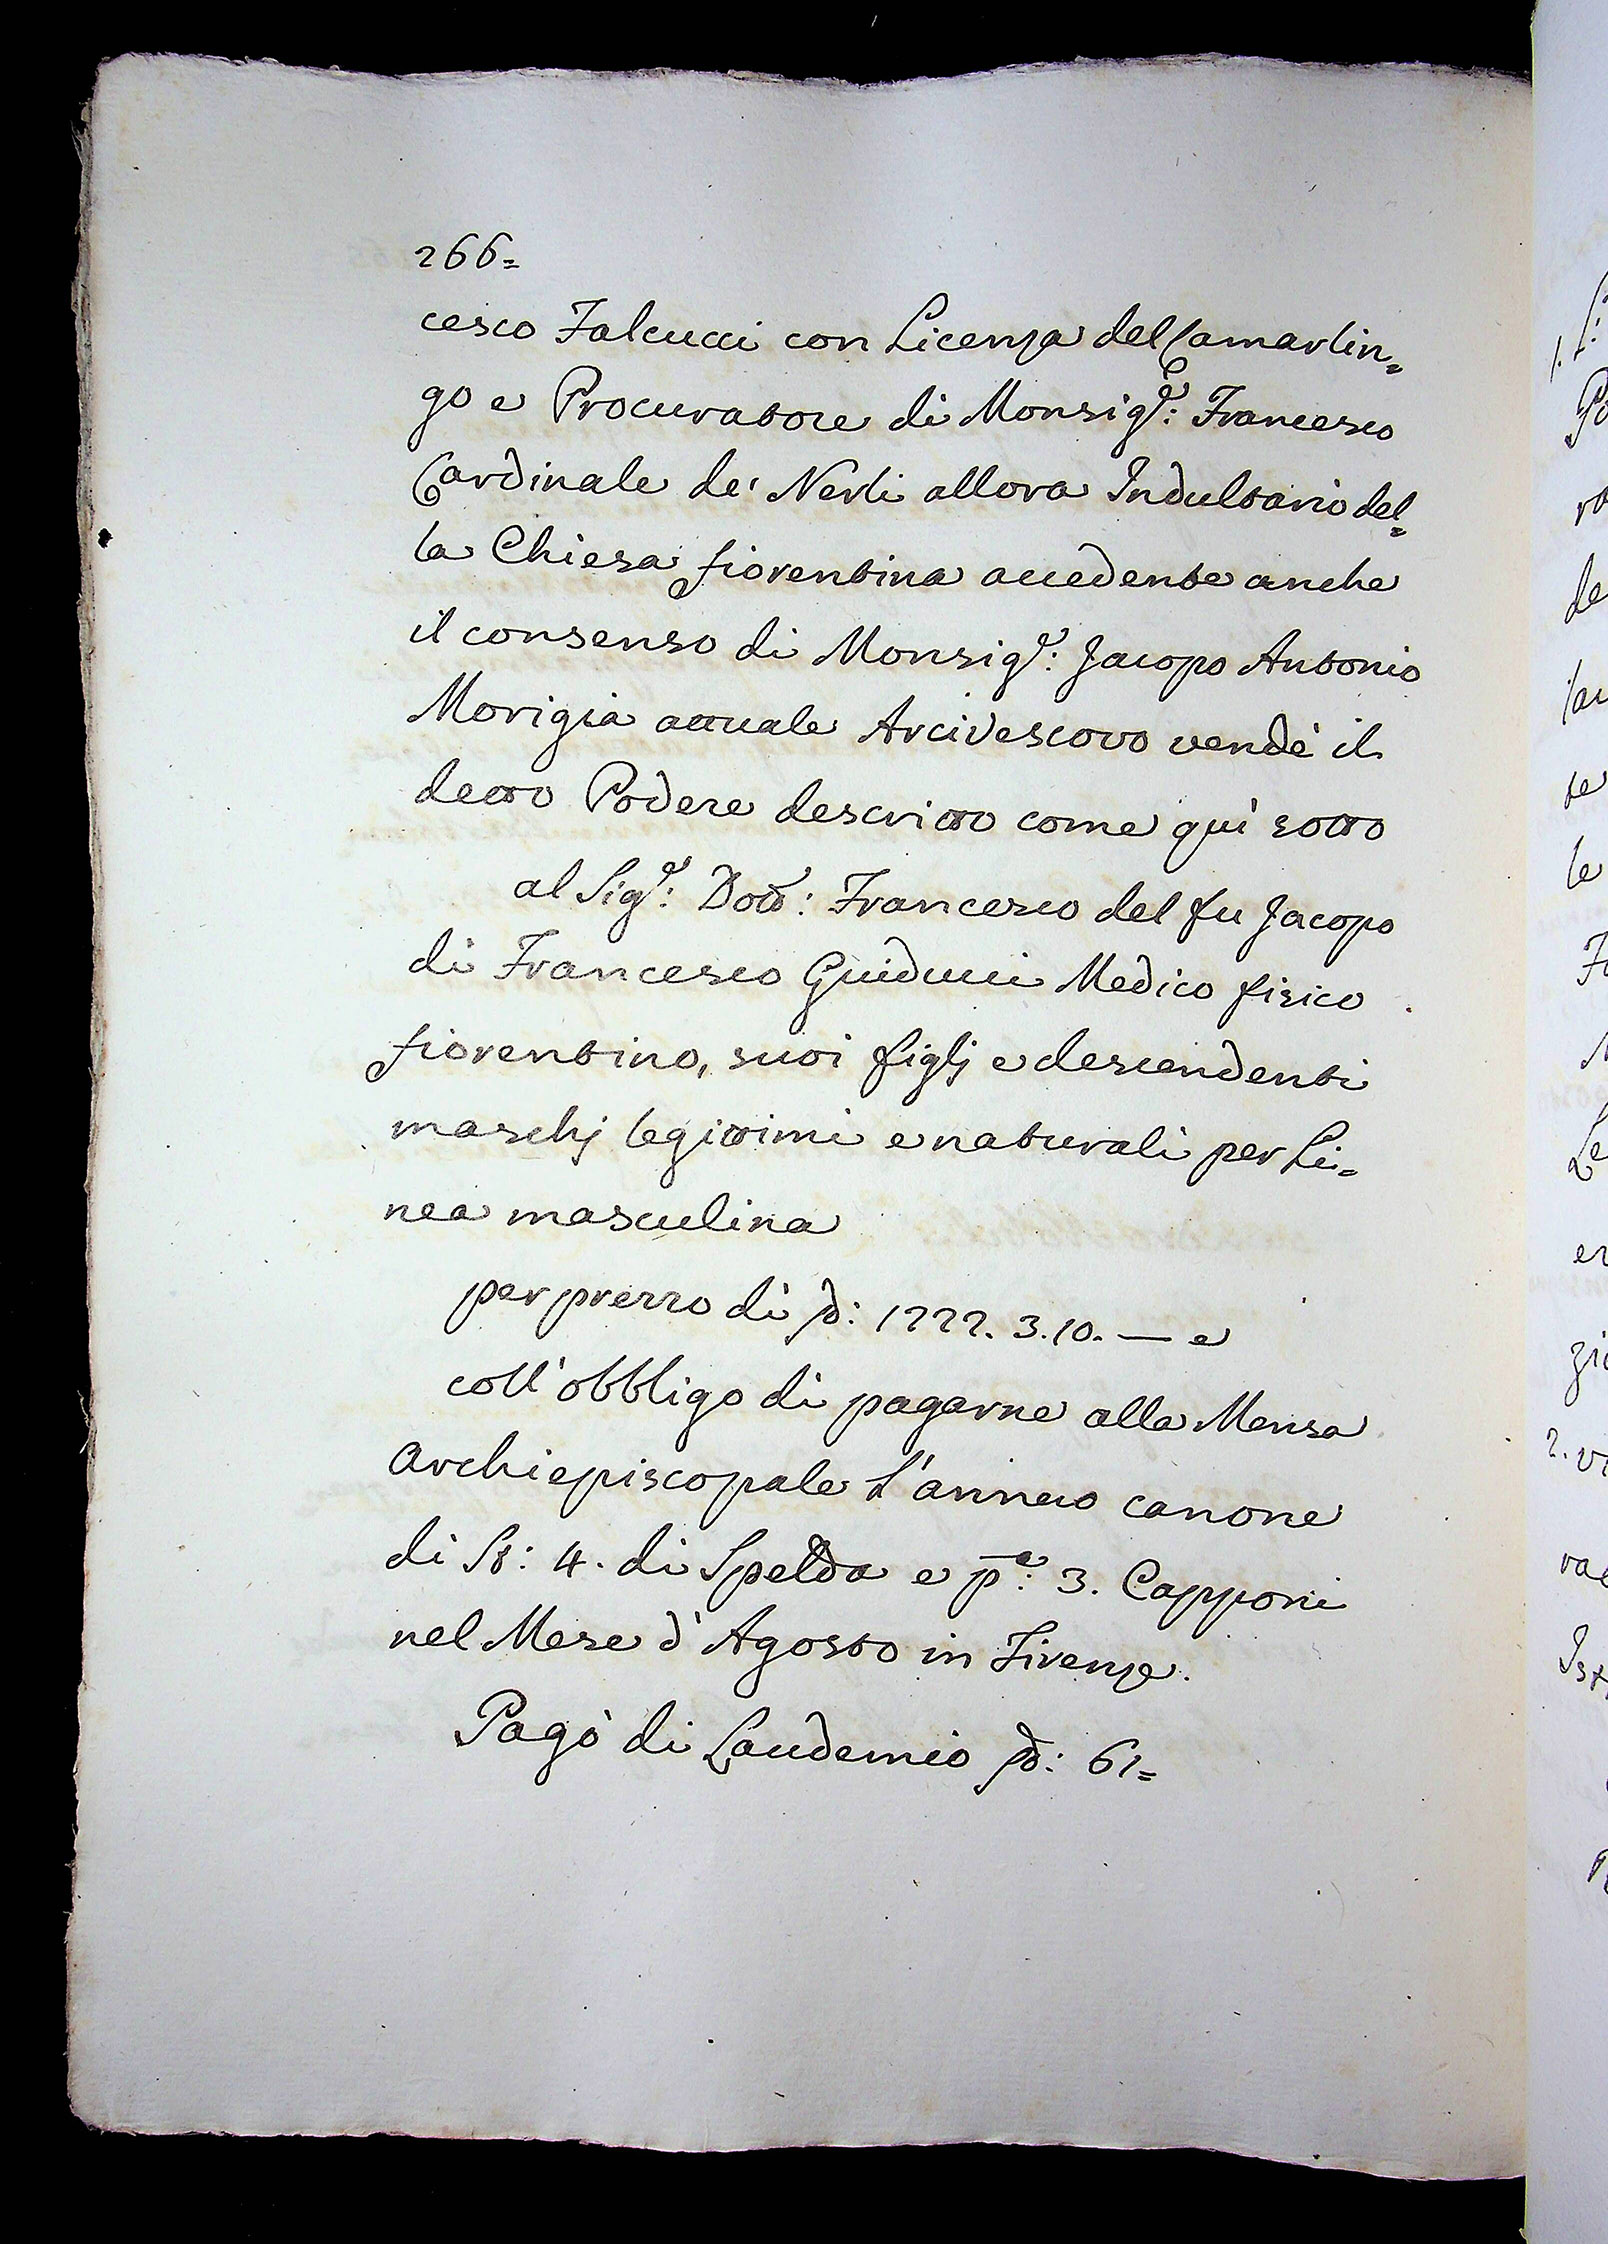 266=
cesco Falcucci con Licenza del Camarlin=
go e Procuratore di Monsig.r: Francesco
Cardinale de' Nerli allora Indultario del=
la Chiesa fiorentina accedente anche
il consenso di Monsig.r: Jacopo Antonio
Morigia attuale Arcivescovo vendè il
detto Podere descritto come quì sotto
al Sig.r: Dott.r: Francesco del fu Jacopo
di Francesco Guiducci Medico fisico
fiorentino, suoi figlj e descendenti
maschj legittimi e naturali per Li=
nea masculina
per prezzo di 1222. 3. 10. — e
coll'obbligo di pagarne alla Mensa
Archiepiscopale l'annuo canone
di St: 4. di Spelda e p.a: 3. Capponi
nel Mese d'Agosto in Firenze.
Pagò di Laudemio 61=